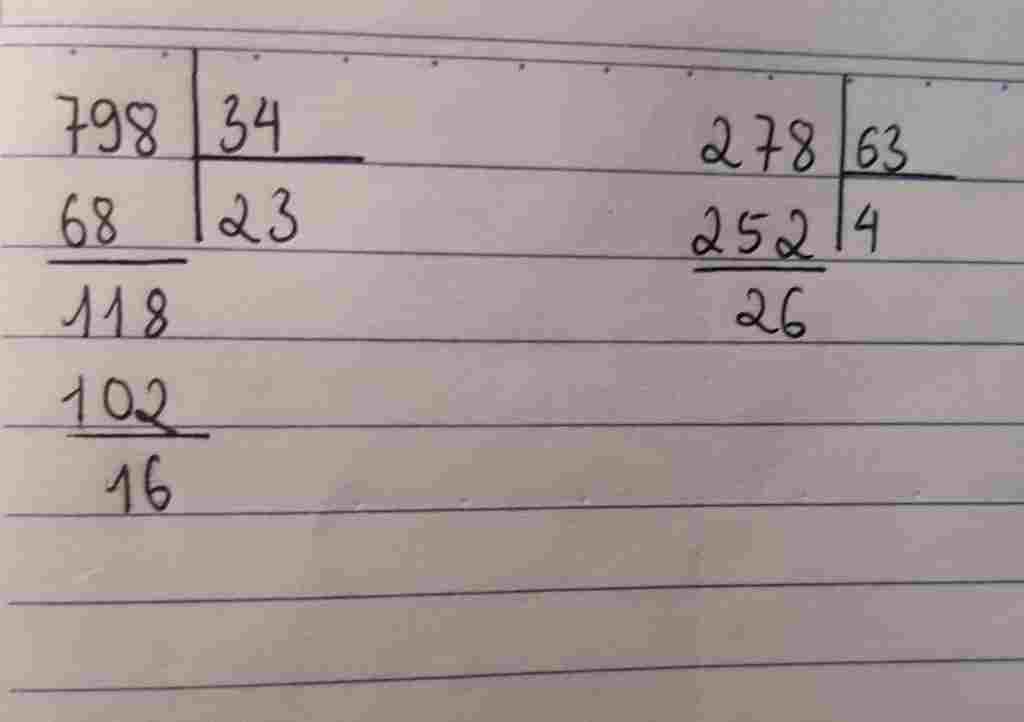 798 34
68 23
118
102
16
278 63
252 4
26